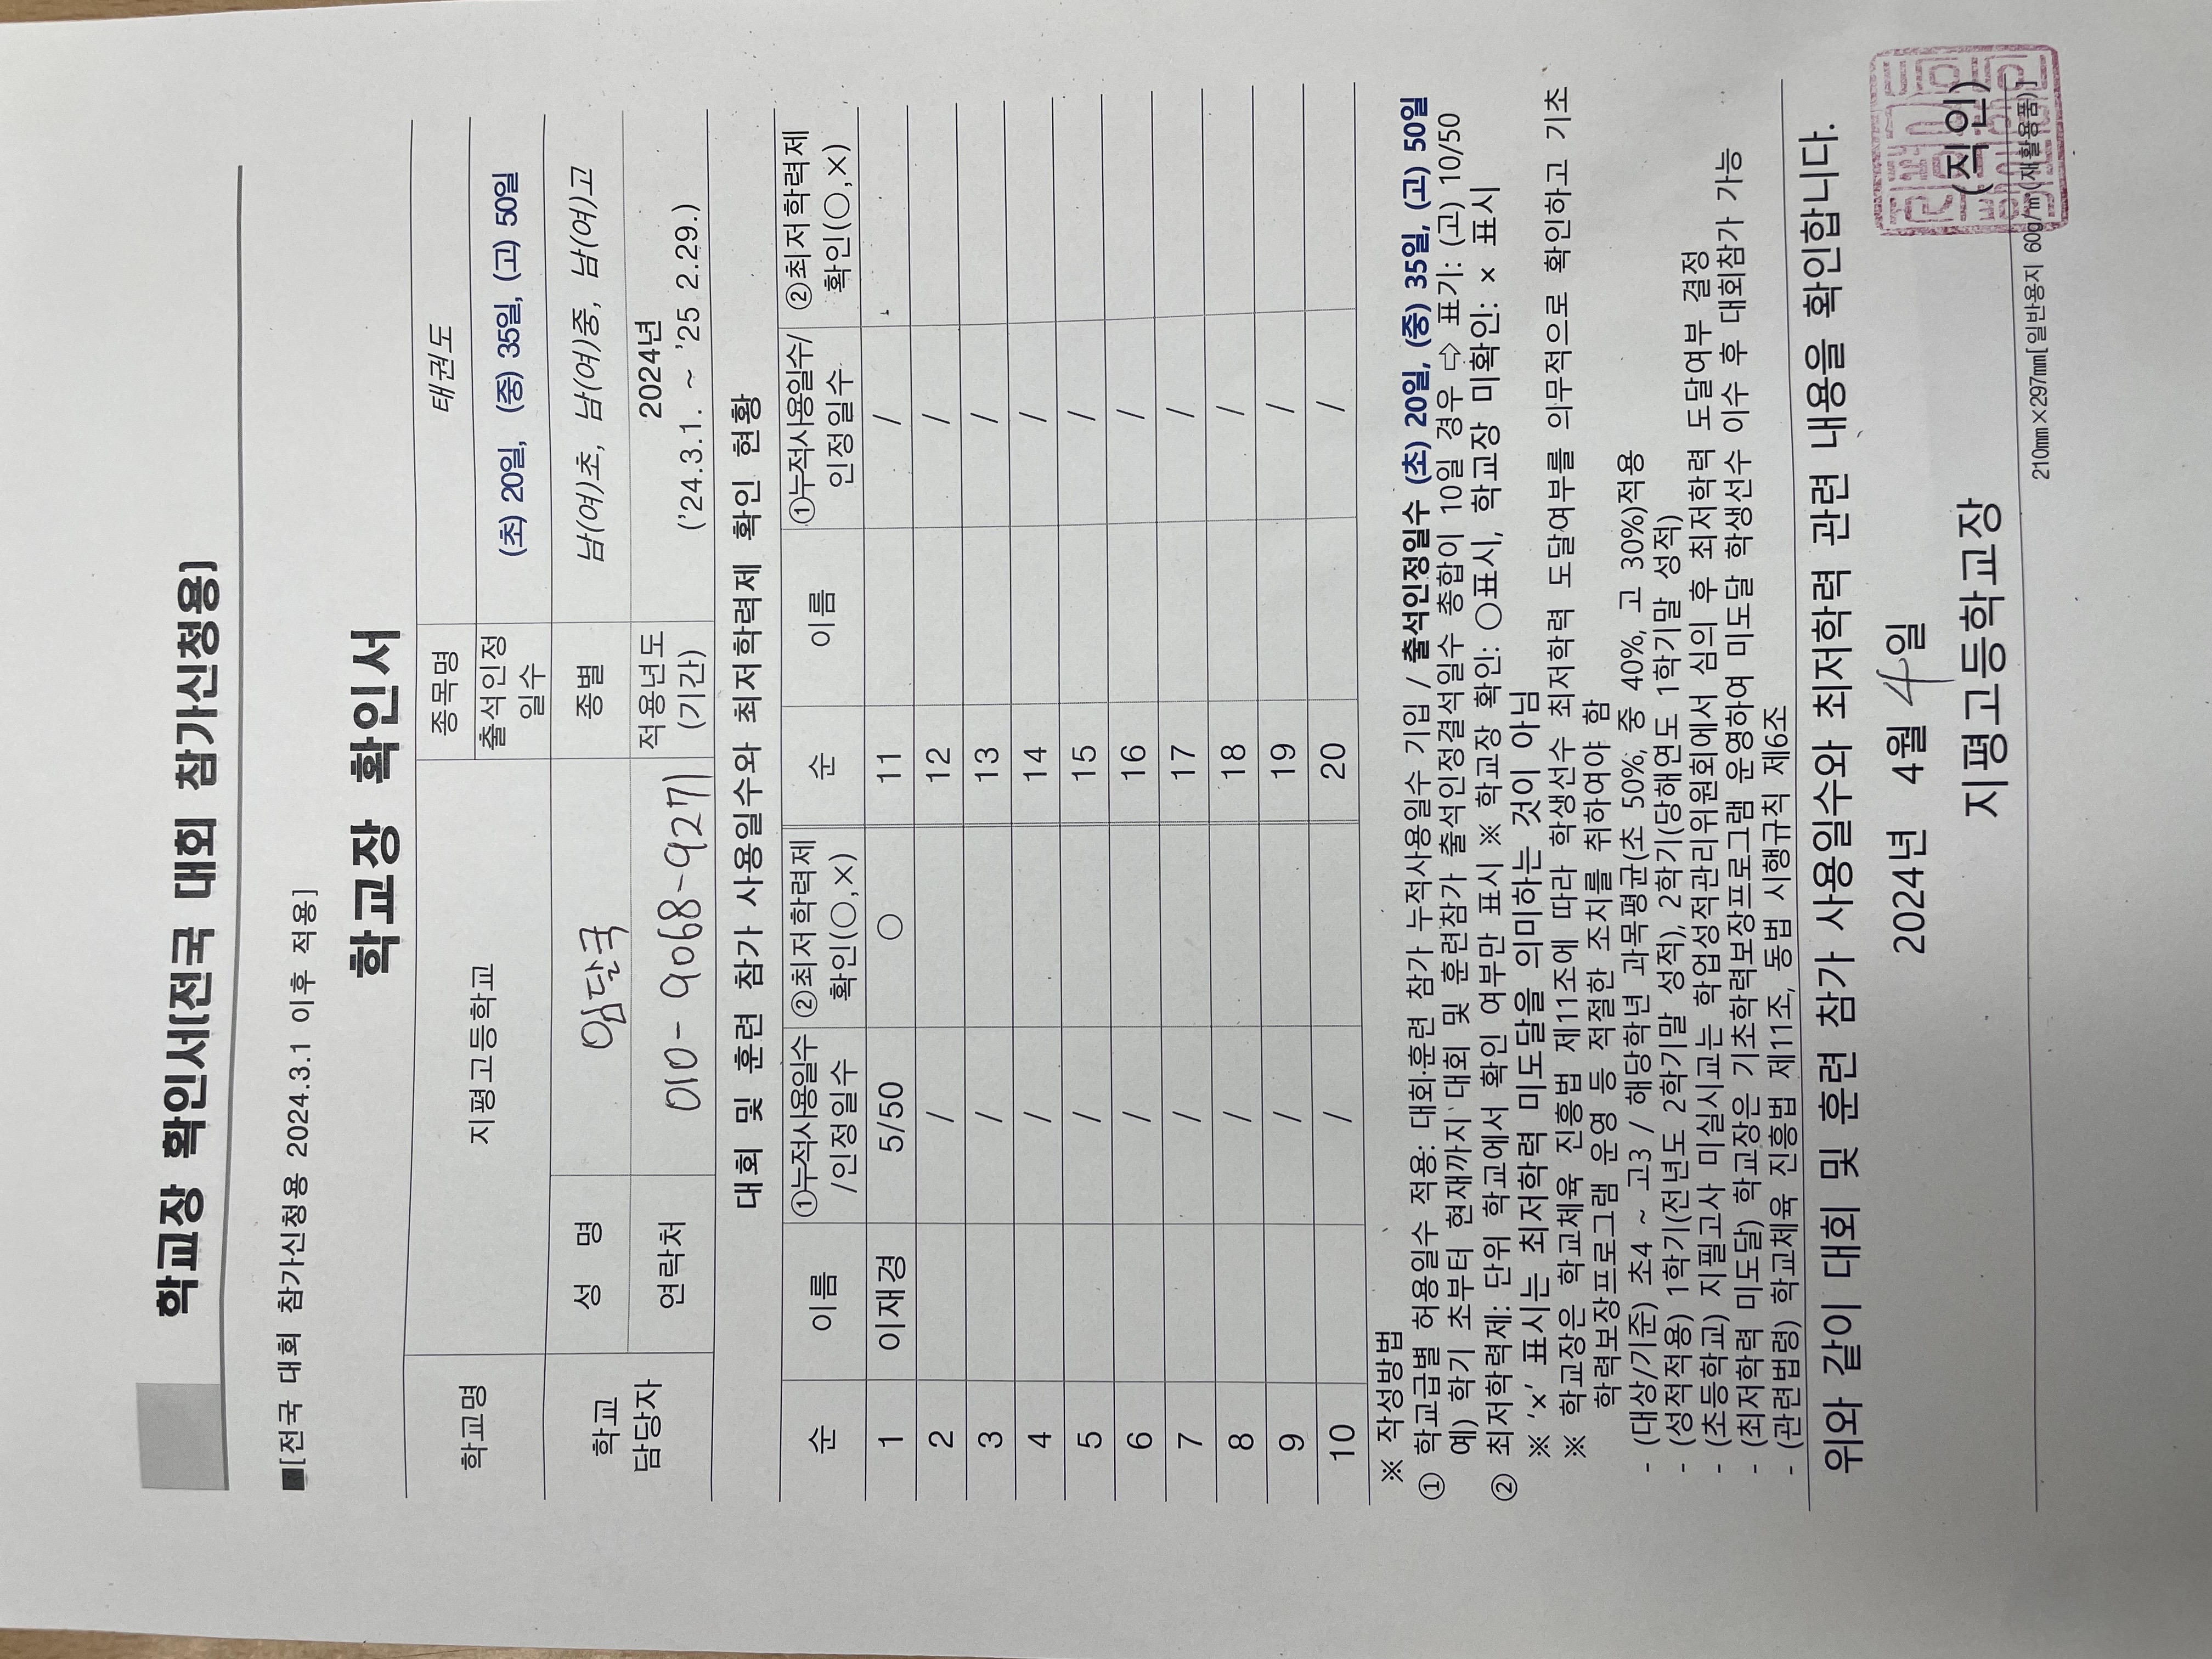 학교장 확인서(전국 대회 참가신청용)
■[전국 대회 참가신청용 2024.3.1 이후 적용]
학교장 확인서
학교명 지평고등학교 종목명 태권도
출석인정 일수 (초) 20일, (중) 35일, (고) 50일
학교 담당자 성 명 임달국 종별 남(여)초, 남(여)중, 남(여)고
연락처 010-9068-9271 적용년도 (기간) 2024년 ('24.3.1. ~ '25 2.29.)
대회 및 훈련 참가 사용일수와 최저학력제 확인 현황
순 이름 ①누적사용일수 /인정일수 ②최저학력제 확인(○,×) 순 이름 ①누적사용일수/ 인정일수 ②최저학력제 확인(○,×)
1 이재경 5/50 ○ 11 /
2 / 12 /
3 / 13 /
4 / 14 /
5 / 15 /
6 / 16 /
7 / 17 /
8 / 18 /
9 / 19 /
10 / 20 /
※ 작성방법
① 학교급별 허용일수 적용: 대회·훈련 참가 누적사용일수 기입 / 출석인정일수 (초) 20일, (중) 35일, (고) 50일
예) 학기 초부터 현재까지 대회 및 훈련참가 출석인정결석일수 총합이 10일 경우 ⇨ 표기: (고) 10/50
② 최저학력제: 단위 학교에서 확인 여부만 표시 ※ 학교장 확인: ○표시, 학교장 미확인: × 표시
※ '×' 표시는 최저학력 미도달을 의미하는 것이 아님
※ 학교장은 학교체육 진흥법 제11조에 따라 학생선수 최저학력 도달여부를 의무적으로 확인하고 기초
학력보장프로그램 운영 등 적절한 조치를 취하여야 함
- (대상/기준) 초4 ~ 고3 / 해당학년 과목평균(초 50%, 중 40%, 고 30%)적용
- (성적적용) 1학기(전년도 2학기말 성적), 2학기(당해연도 1학기말 성적)
- (초등학교) 지필고사 미실시교는 학업성적관리위원회에서 심의 후 최저학력 도달여부 결정
- (최저학력 미도달) 학교장은 기초학력보장프로그램 운영하여 미도달 학생선수 이수 후 대회참가 가능
- (관련법령) 학교체육 진흥법 제11조, 동법 시행규칙 제6조
위와 같이 대회 및 훈련 참가 사용일수와 최저학력 관련 내용을 확인합니다.
2024년 4월 4일
지평고등학교장 (직인)
210㎜×297㎜[일반용지 60g/㎡(재활용품)]